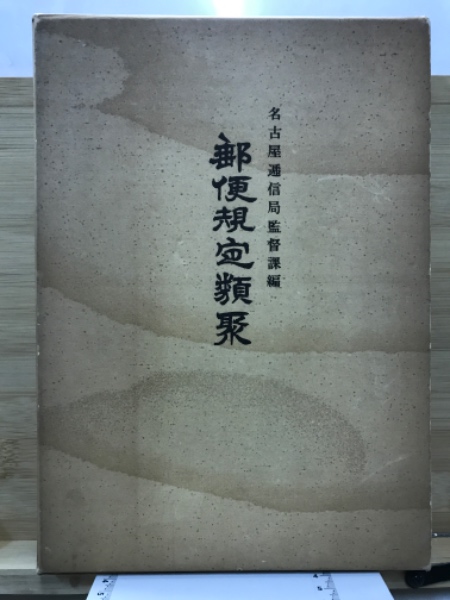 名古屋逓信局監督課編
郵便規定類聚